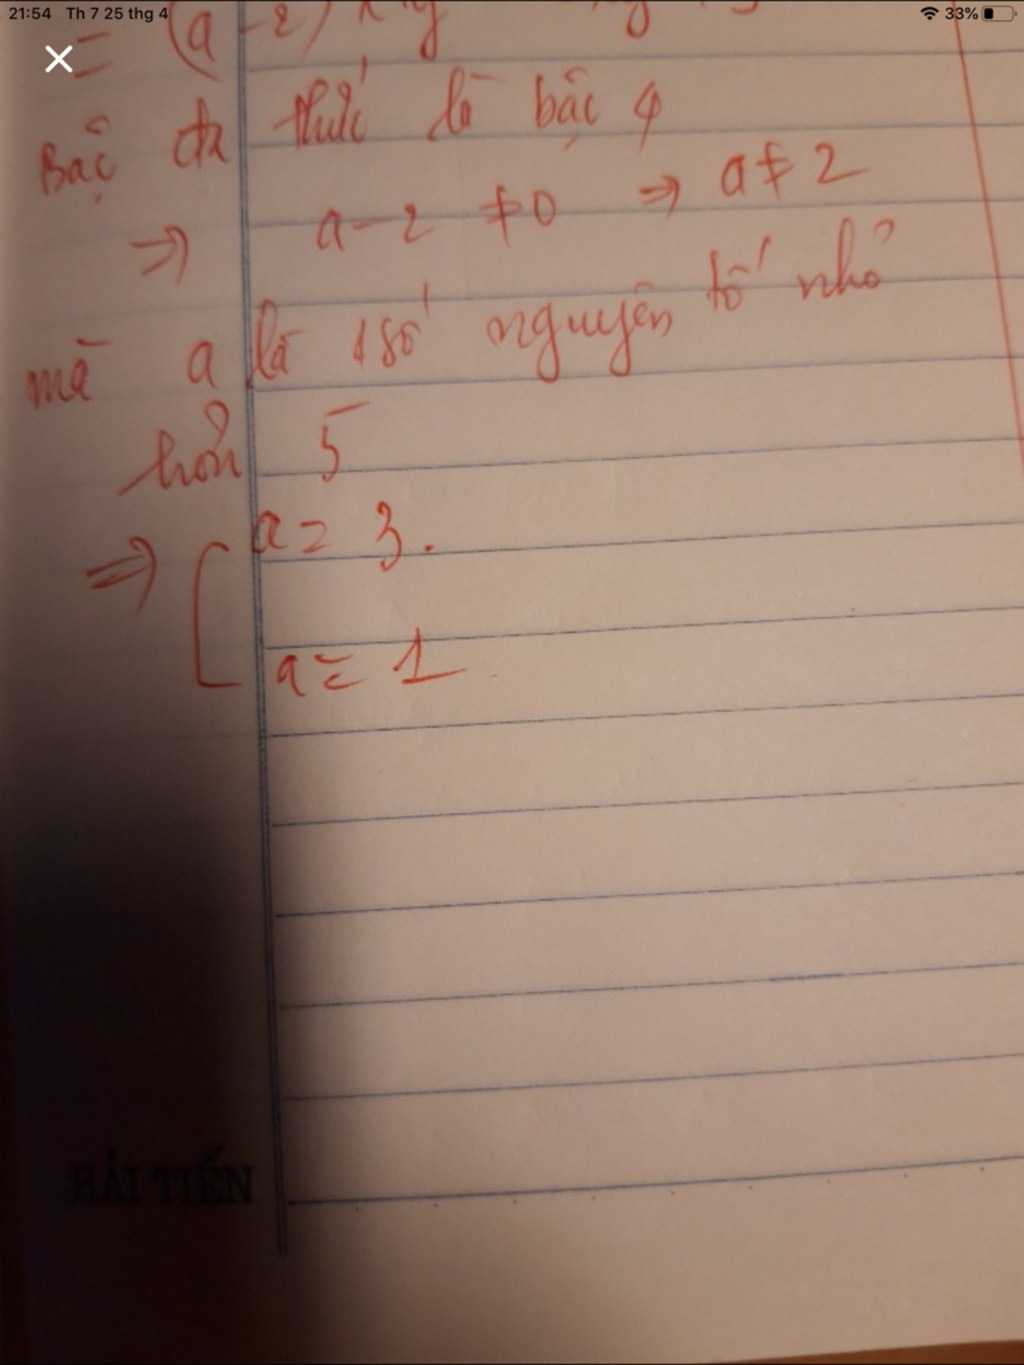 21:54 Th 7 25 thg 4 33%
= (a-2)
Bậc đa thức là bậc 4
⇒ a-2 ≠0 ⇒ a≠2
mà a là 1 số nguyên tố nhỏ
hơn 5
⇒ [ a = 3.
a = 1
HẢI TIẾN